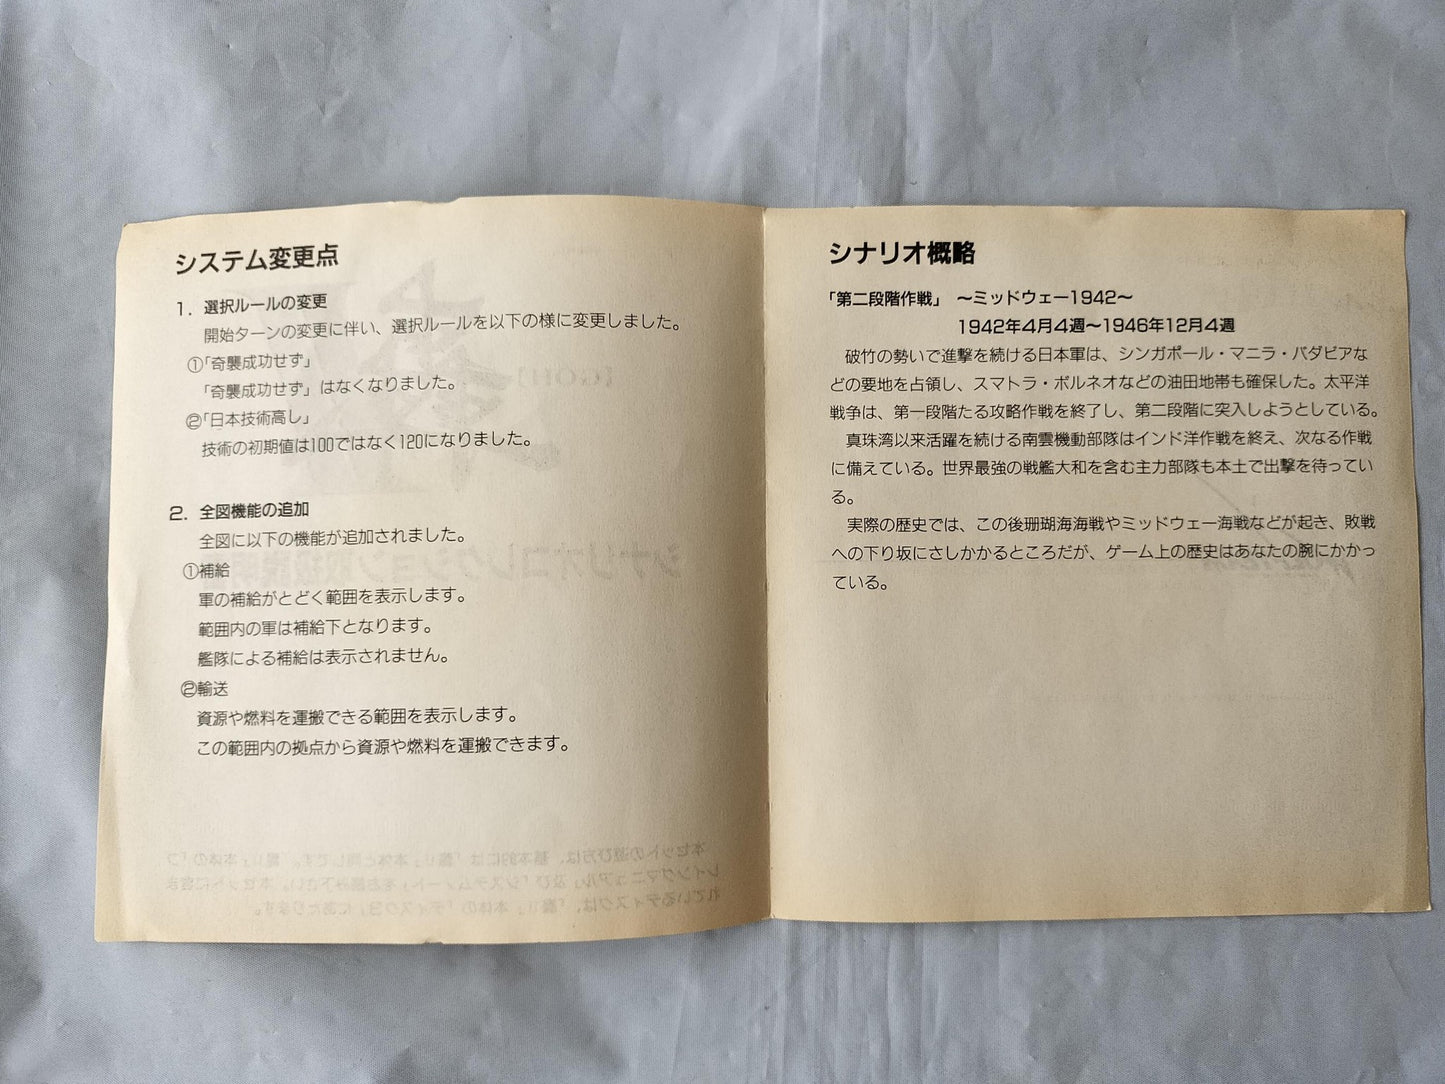 システム変更点
1．選択ルールの変更
開始ターンの変更に伴い、選択ルールを以下の様に変更しました。
①「奇襲成功せず」
「奇襲成功せず」はなくなりました。
②「日本技術高し」
技術の初期値は100ではなく120になりました。
2．全図機能の追加
全図に以下の機能が追加されました。
①補給
軍の補給がとどく範囲を表示します。
範囲内の軍は補給下となります。
艦隊による補給は表示されません。
②輸送
資源や燃料を運搬できる範囲を表示します。
この範囲内の拠点から資源や燃料を運搬できます。
シナリオ概略
「第二段階作戦」　～ミッドウェー1942～
1942年４月４週～1946年12月４週
破竹の勢いで進撃を続ける日本軍は、シンガポール・マニラ・バダビアな
どの要地を占領し、スマトラ・ボルネオなどの油田地帯も確保した。太平洋
戦争は、第一段階たる攻略作戦を終了し、第二段階に突入しようとしている。
真珠湾以来活躍を続ける南雲機動部隊はインド洋作戦を終え、次なる作戦
に備えている。世界最強の戦艦大和を含む主力部隊も本土で出撃を待ってい
る。
実際の歴史では、この後珊瑚海海戦やミッドウェー海戦などが起き、敗戦
への下り坂にさしかかるところだが、ゲーム上の歴史はあなたの腕にかかっ
ている。